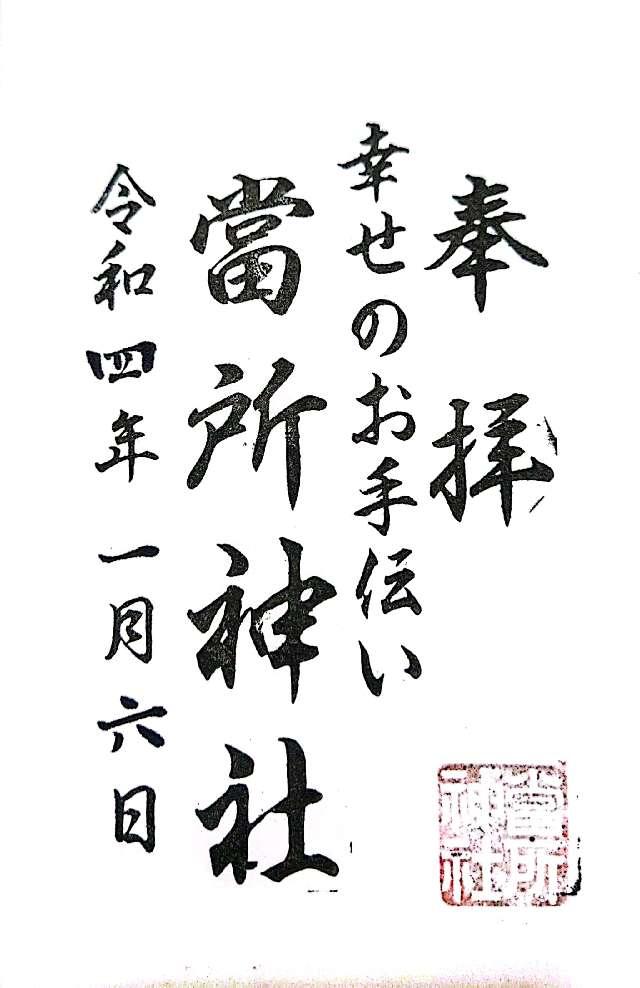 奉拝
幸せのお手伝い
當所神社
令和四年一月六日
當所
神社